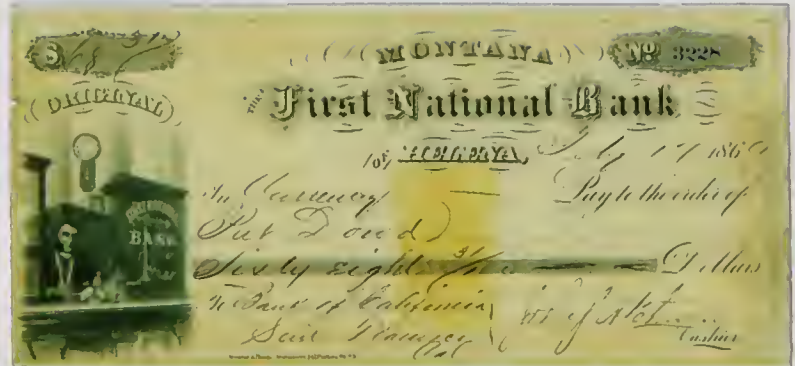 $ 68
MONTANA
No 3228
ORIGINAL
THE First National Bank
of HELENA, July 17 186
In Currency Pay to the order of
Pat Dowd
BANK
Sixty Eight Dollars
To Bank of California
San Francisco
Cal
Cashier